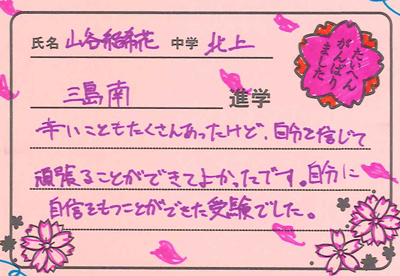 氏名 山谷稲希花 中学 北上
たいへん
がんばり
ました
三島南 進学
辛いこともたくさんあったけど、自分を信じて
頑張ることができてよかったです。自分に
自信をもつことができた受験でした。